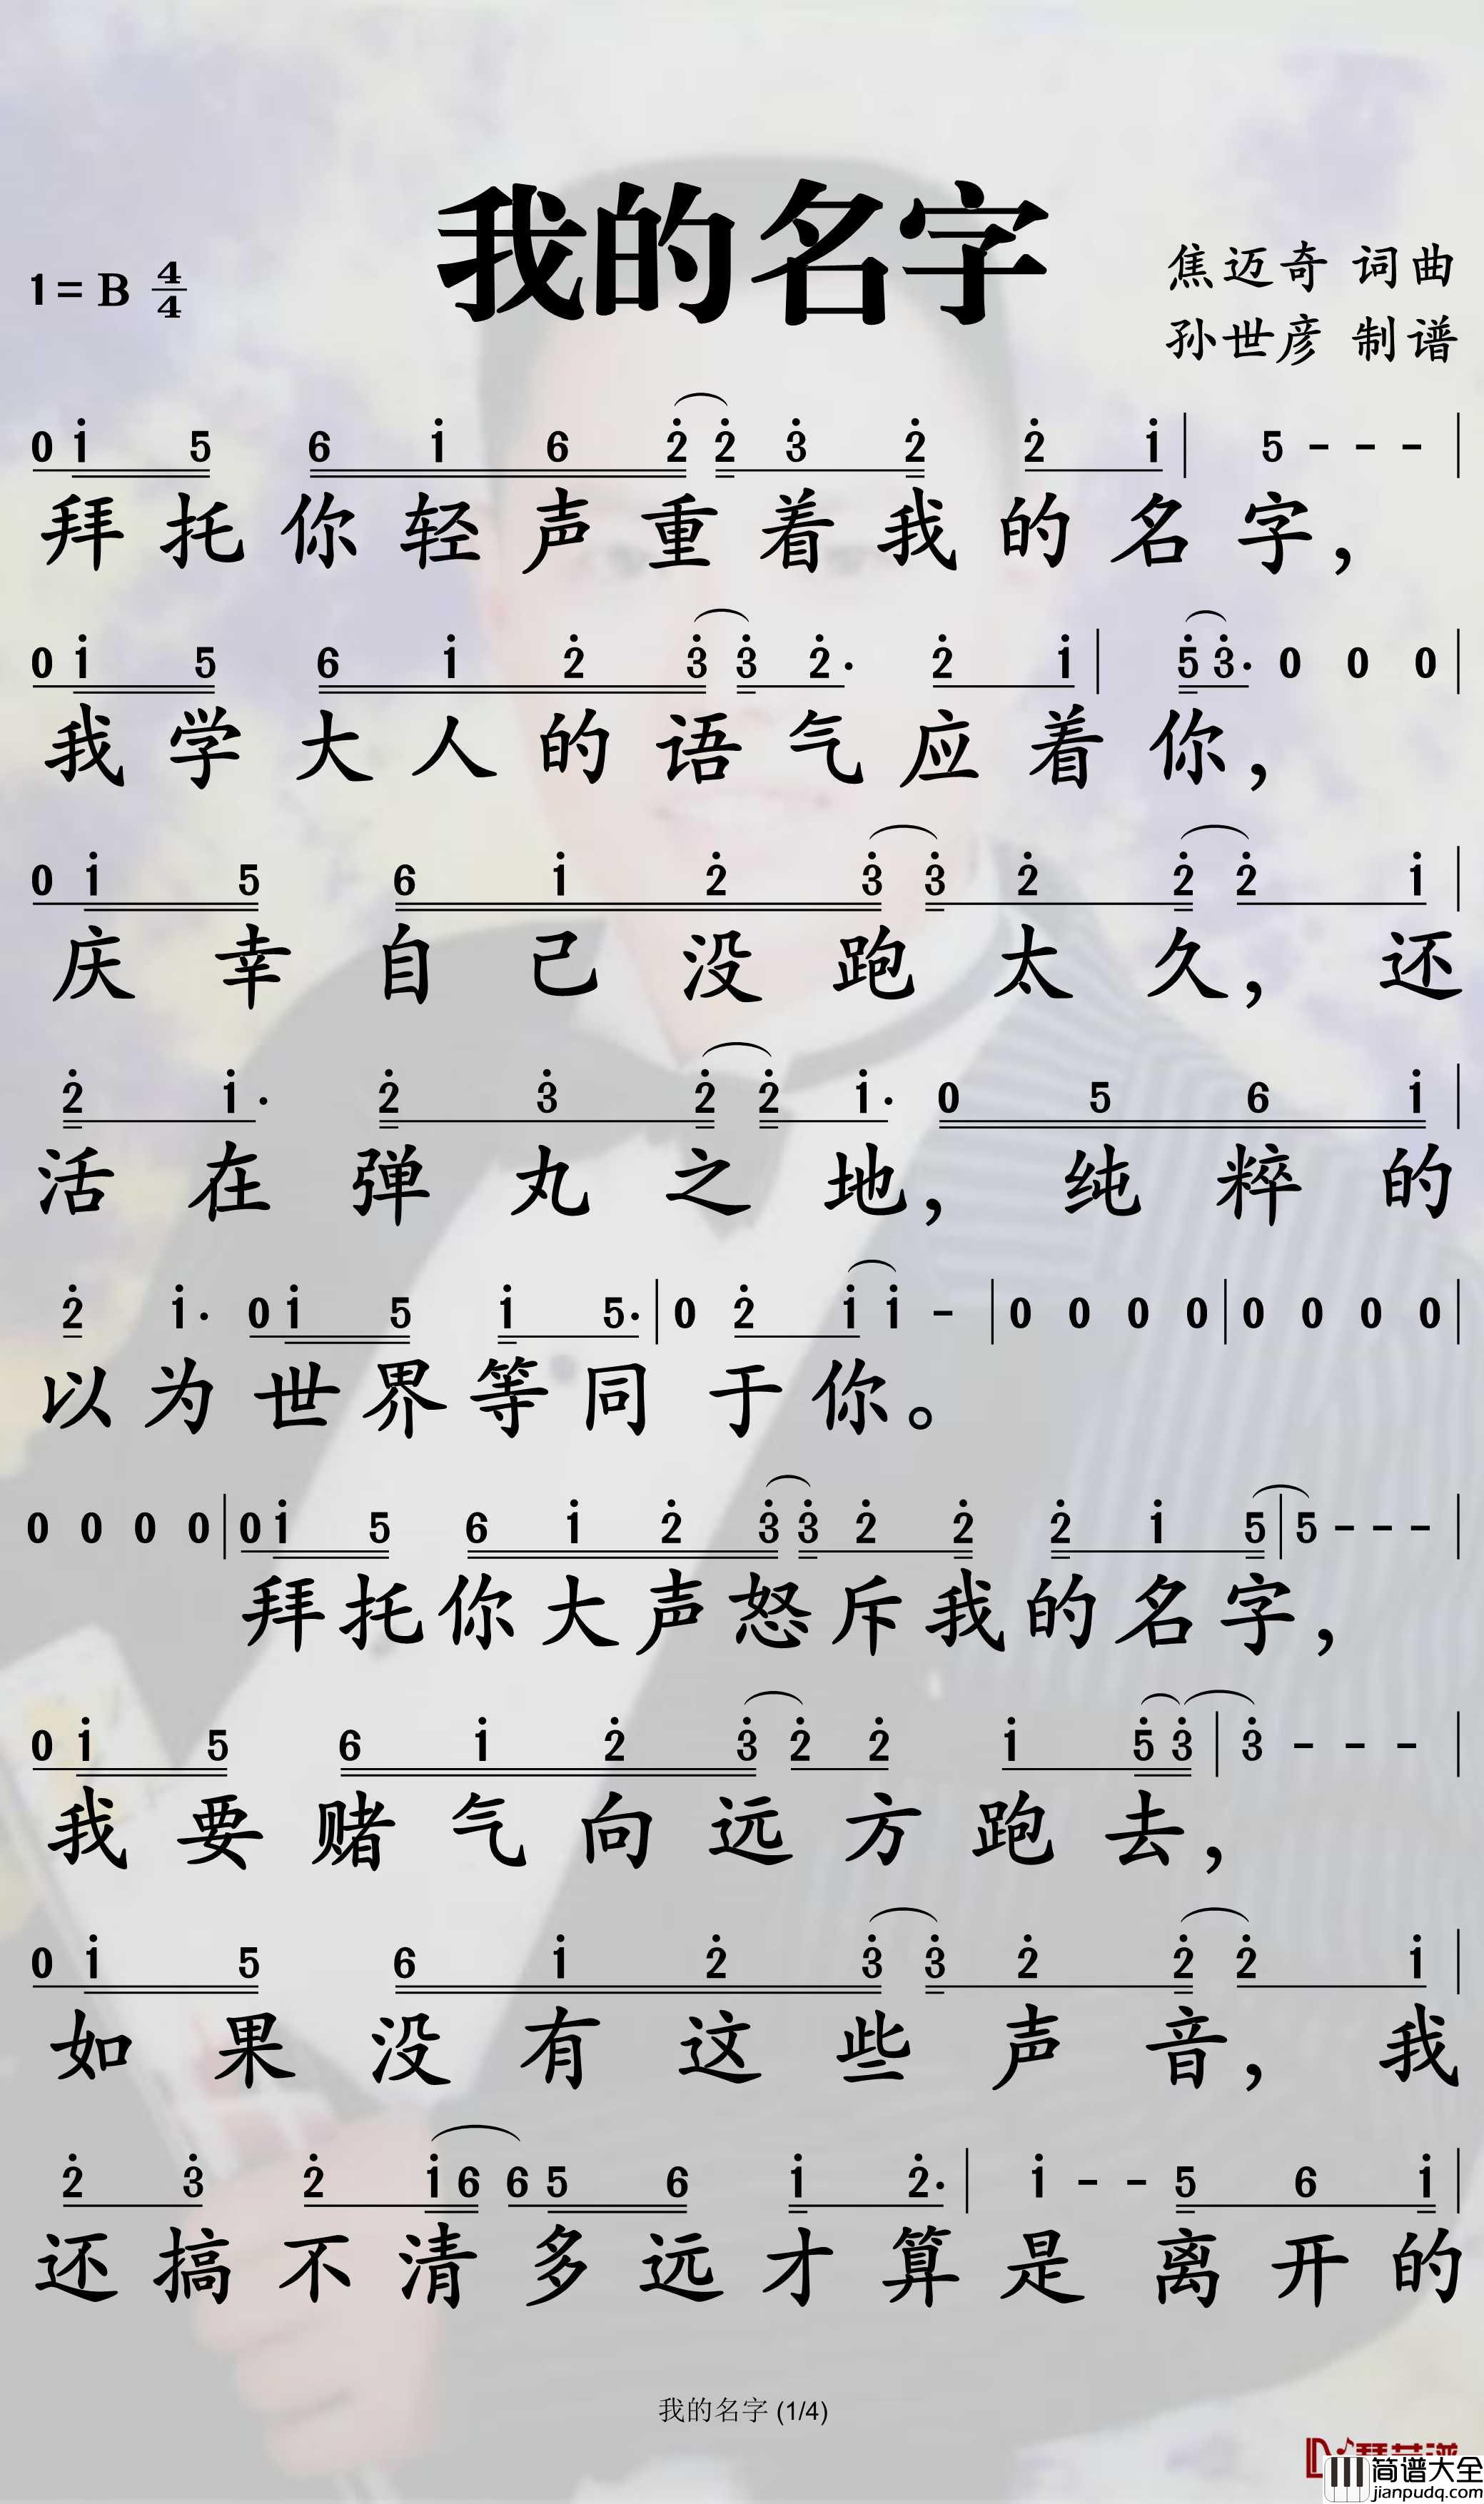 我的名字
1=B 4/4
焦迈奇 词曲
孙世彦 制谱
0 1 5 6 1 6 2 2 3 2 2 1 | 5 - - - |
拜托你轻声重着我的名字，
0 1 5 6 1 2 3 3 2· 2 1 | 5 3· 0 0 0 |
我学大人的语气应着你，
0 1 5 6 1 2 3 3 2 2 2 1 |
庆幸自己没跑太久，还
2 1· 2 3 2 2 1· 0 5 6 1 |
活在弹丸之地，纯粹的
2 1· 0 1 5 1 5· | 0 2 1 1 - | 0 0 0 0 | 0 0 0 0 |
以为世界等同于你。
0 0 0 0 | 0 1 5 6 1 2 3 3 2 2 2 1 5 | 5 - - - |
拜托你大声怒斥我的名字，
0 1 5 6 1 2 3 2 2 1 5 3 | 3 - - - |
我要赌气向远方跑去，
0 1 5 6 1 2 3 3 2 2 2 1 |
如果没有这些声音，我
2 3 2 1 6 6 5 6 1 2· | 1 - - 5 6 1 |
还搞不清多远才算是离开的
我的名字 (1/4)
简谱大全
jianpudq.com